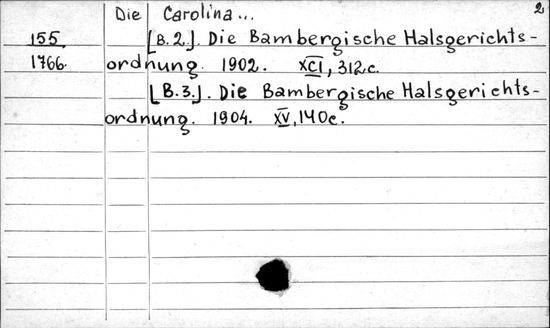 2
Die Carolina...
155 [B.2.]. Die Bambergische Halsgerichts-
1766. ordnung. 1902. XCI, 312c.
[B.3.]. Die Bambergische Halsgerichts-
ordnung. 1904. XV, 140c.